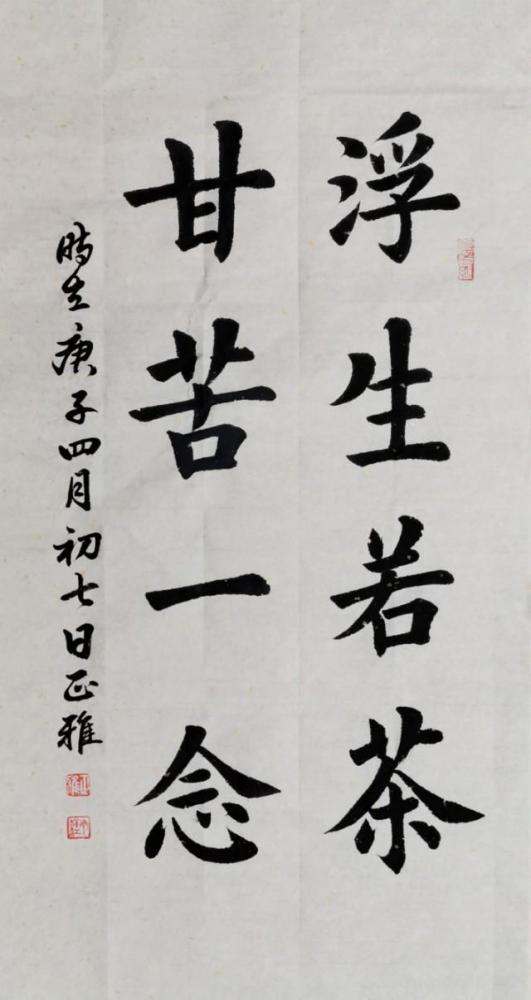 浮生若茶
甘苦一念
時在庚子四月初七日正雅